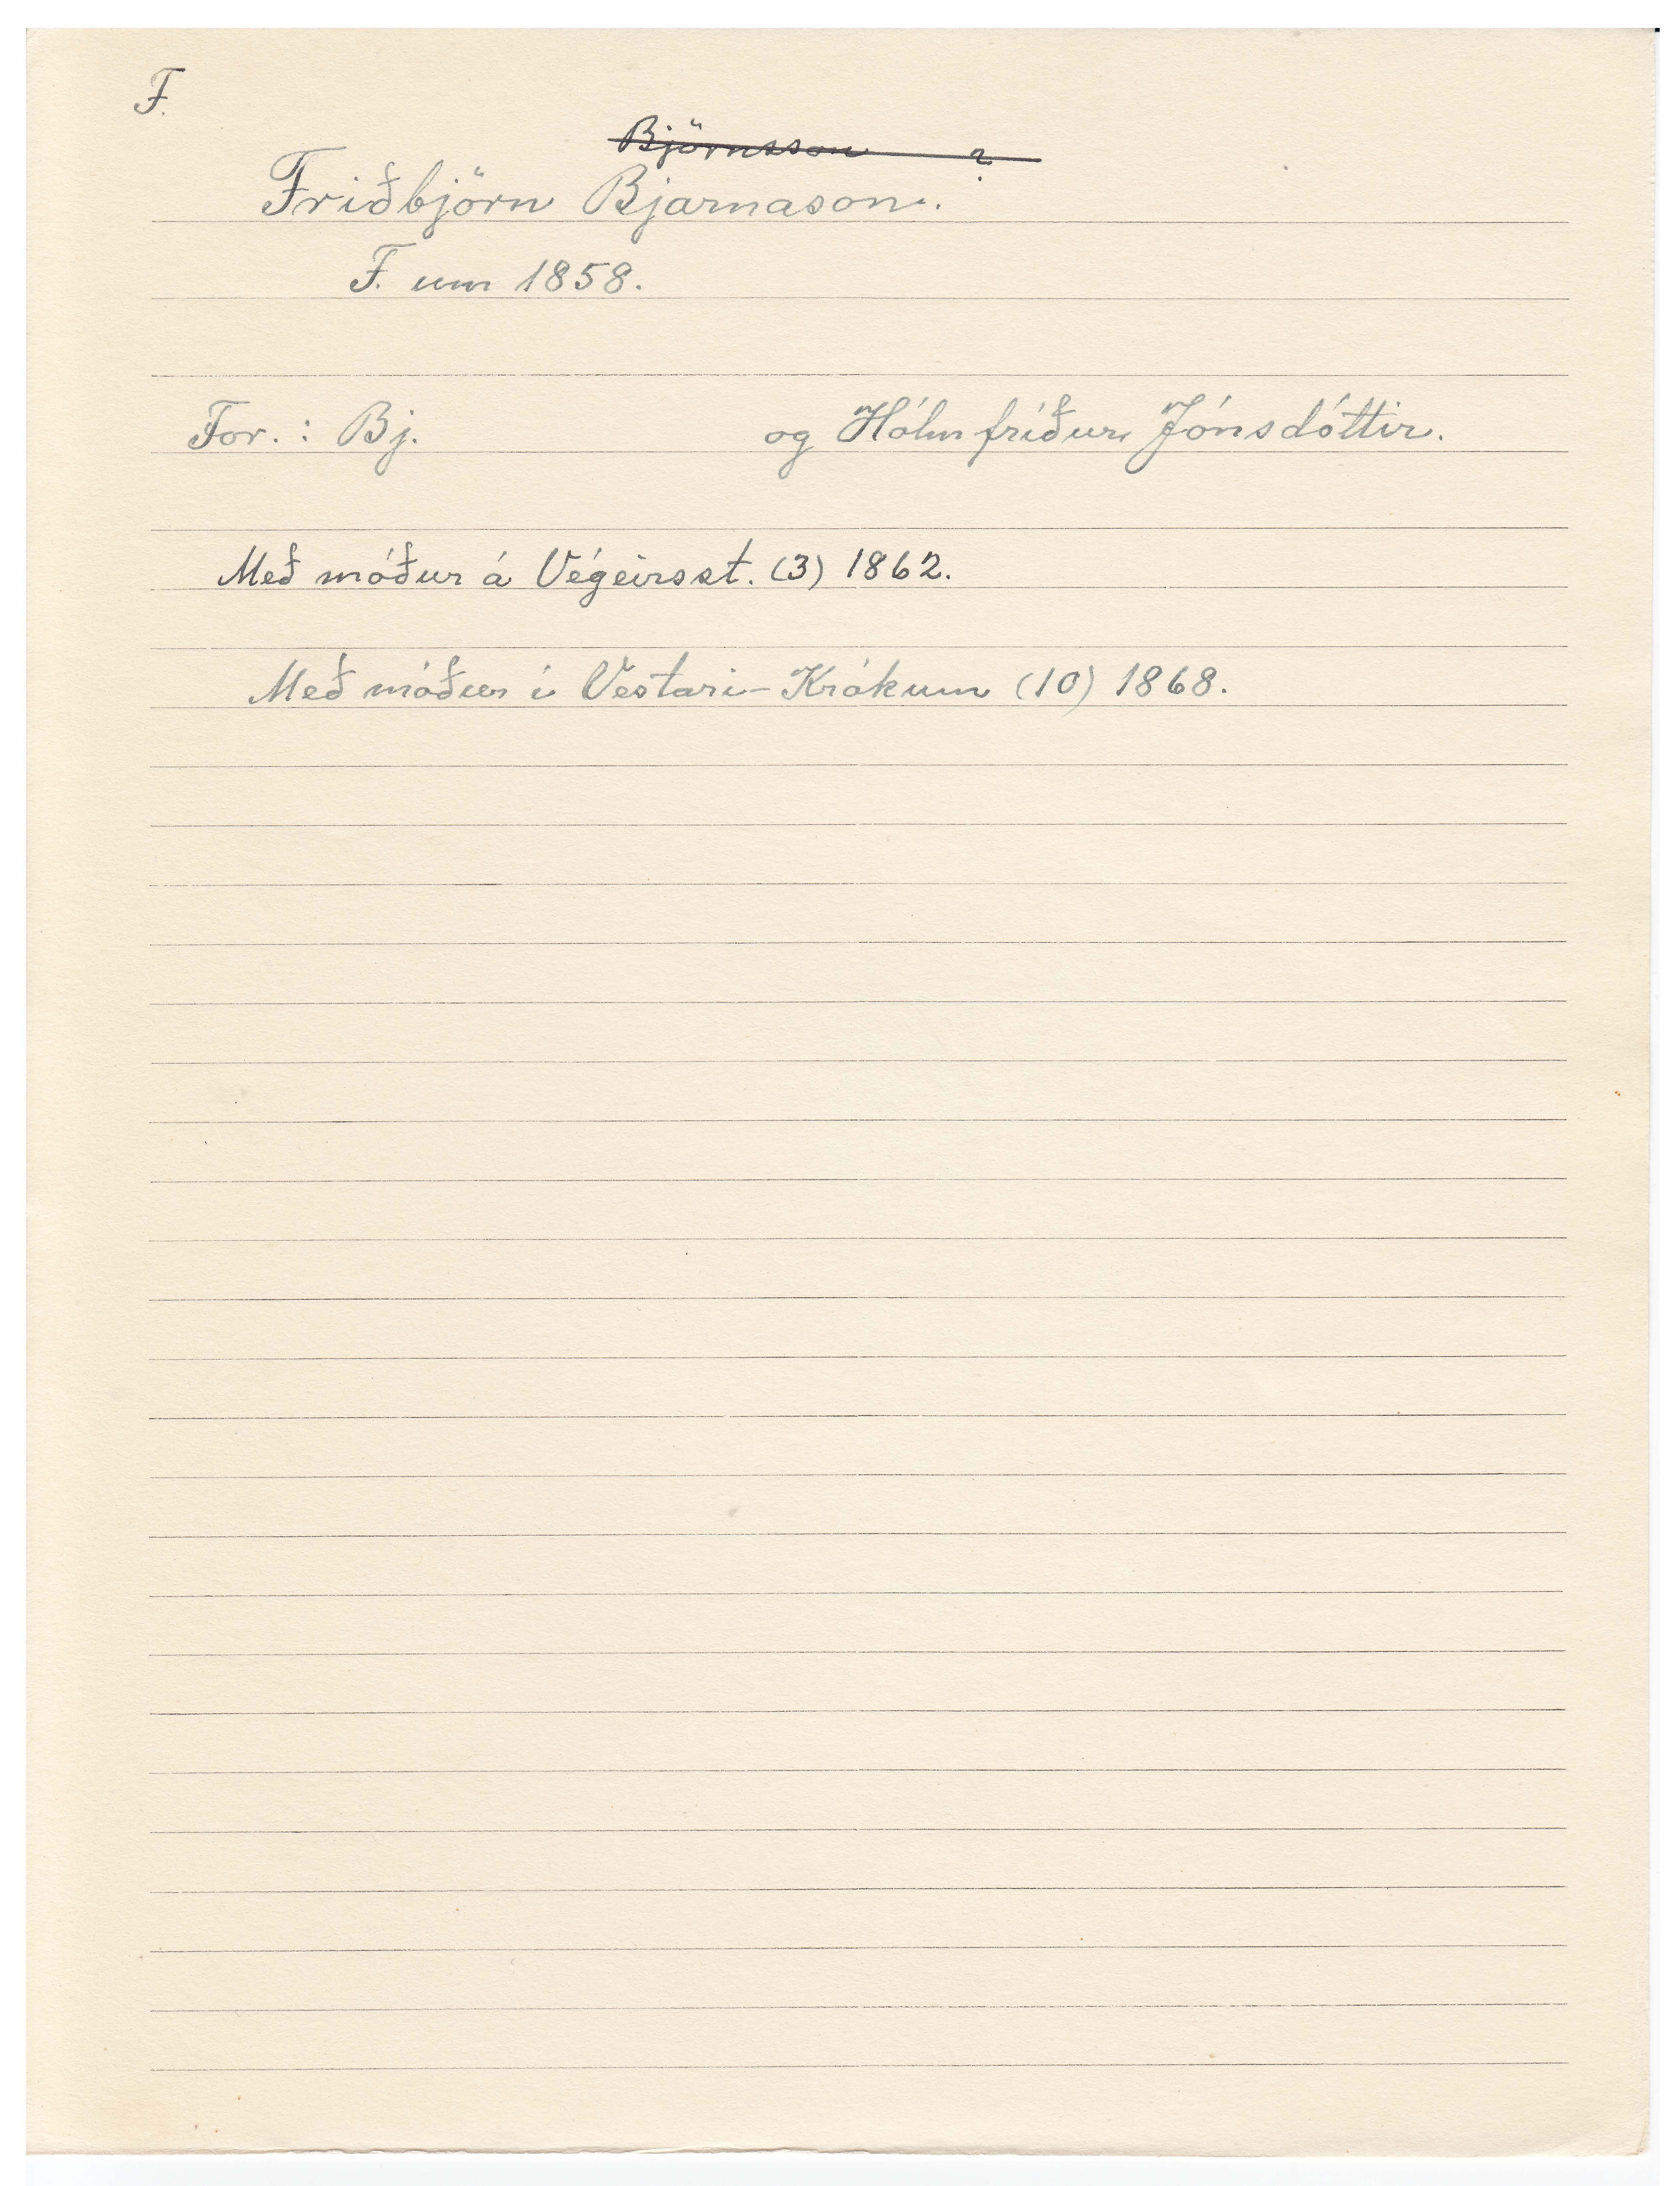 F.
Björnsson ?
Friðbjörn Bjarnason.
F. um 1858.
For.: Bj. og Hólmfríður Jónsdóttir.
Með móður á Végeirsst. (3) 1862.
Með móður í Vestari-Krókum (10) 1868.